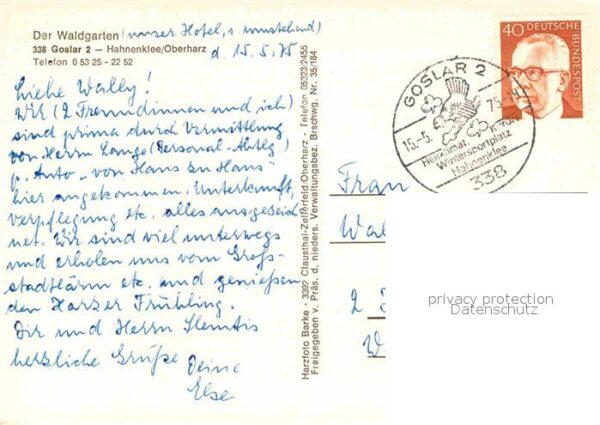 Der Waldgarten (unser Hotel, s. umstehend)
338 Goslar 2 — Hahnenklee/Oberharz
Telefon 0 53 25 - 22 52
d. 15.5.75
Liebe Wally!
Wir (2 Freundinnen und ich)
sind prima durch Vermittlung
von Herrn Lange (Personal-Abtlg)
p. Auto „von Haus zu Haus"
hier angekommen. Unterkunft,
verpflegung etc. alles ausgezeich
net. Wir sind viel unterwegs
und erholen uns vom Groß-
stadtlärm etc. und genießen
den Harzer Frühling.
Dir und Herrn
herzliche Grüße
Deine
Else
Harzfoto Barke · 3392 Clausthal-Zellerfeld/Oberharz - Telefon 05323/2455
Freigegeben v. Präs. d. nieders. Verwaltungsbez. Bschwg. Nr. 35/184
40 DEUTSCHE
BUNDESPOST
GOSLAR 2
15.-5. 75
Heilklimat. Kurort
Wintersportplatz
Hahnenklee
338
Frau
Wal
2
W
privacy protection
Datenschutz